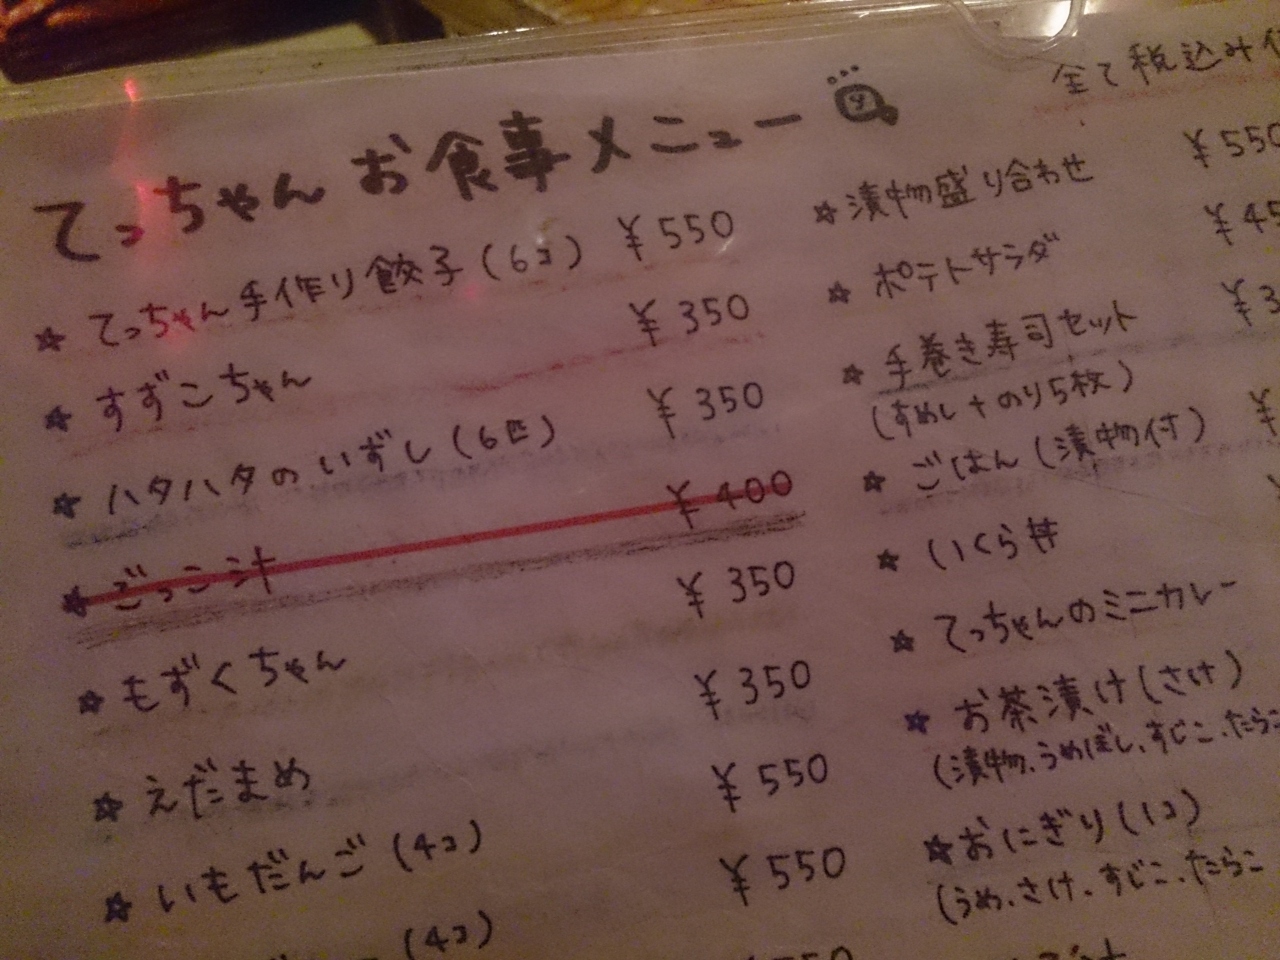 てっちゃんお食事メニュー
全て税込み
☆ てっちゃん手作り餃子(6コ) ¥550
☆ すずこちゃん ¥350
☆ ハタハタのいずし(6匹) ¥350
☆ ごっこ汁 ¥400
☆ もずくちゃん ¥350
☆ えだまめ ¥350
☆ いもだんご(4コ) ¥550
(4コ) ¥550
☆ 漬物盛り合わせ ¥550
☆ ポテトサラダ ¥45
☆ 手巻き寿司セット ¥3
(すめし+のり5枚)
☆ ごはん(漬物付) ¥
☆ いくら丼 ¥
☆ てっちゃんのミニカレー
☆ お茶漬け(さけ)
(漬物、うめぼし、すじこ、たらこ
☆ おにぎり(1コ)
(うめ、さけ、すじこ、たらこ